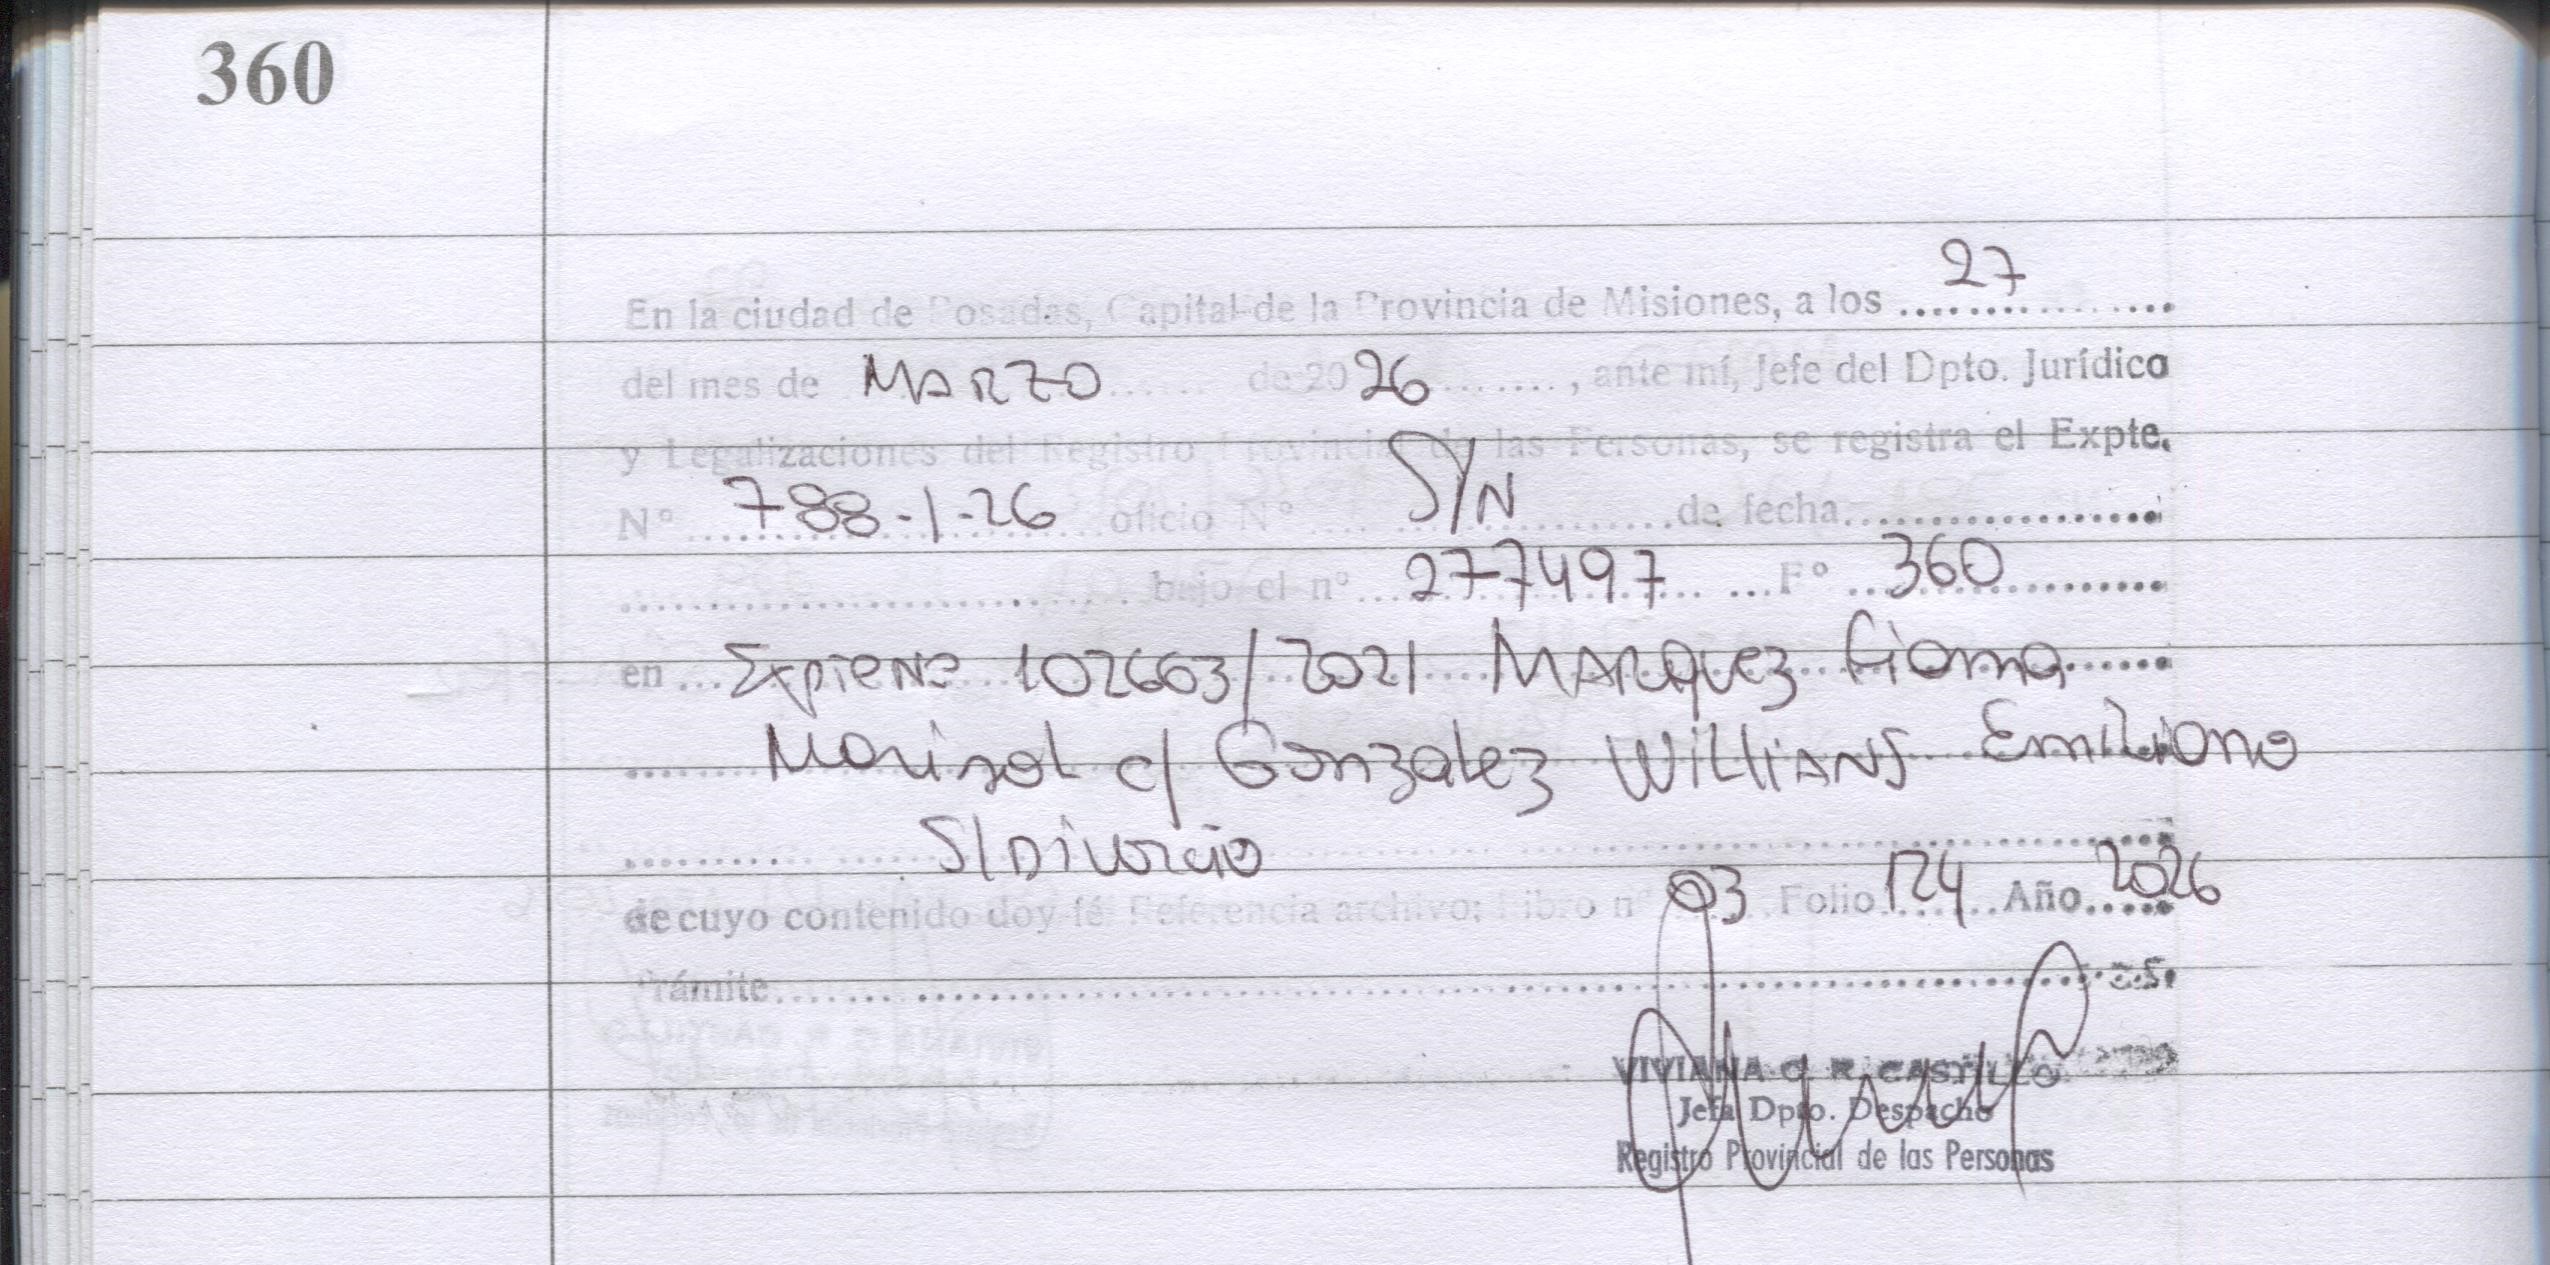 360
En la ciudad de Posadas, Capital de la Provincia de Misiones, a los 27
del mes de MARZO de 2026, ante mí, Jefe del Dpto. Jurídico
y Legalizaciones del Registro Provincial de las Personas, se registra el Expte.
N° 788-1-26 oficio N° S/N de fecha
bajo el n° 277497 F° 360
en Expte N° 102663/2021 MARQUEZ
Marisol c/ Gonzalez WILLIANS Emiliano
S/DIVORCIO
de cuyo contenido doy fé Referencia archivo: Libro n° 03 Folio 124 Año 2026
Trámite
VIVIANA G. R. CASTILLO
Jefa Dpto. Despacho
Registro Provincial de las Personas